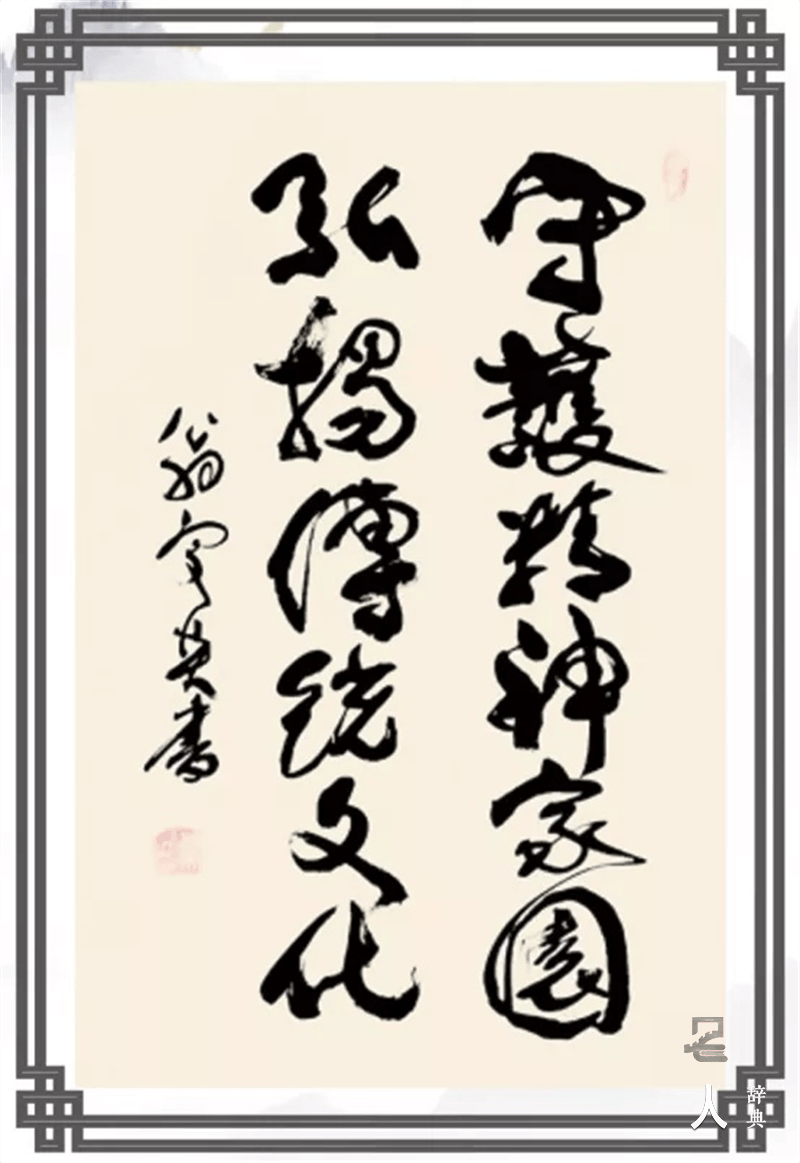 守護精神家園
弘揚傳統文化
翁英書
名人
辞典